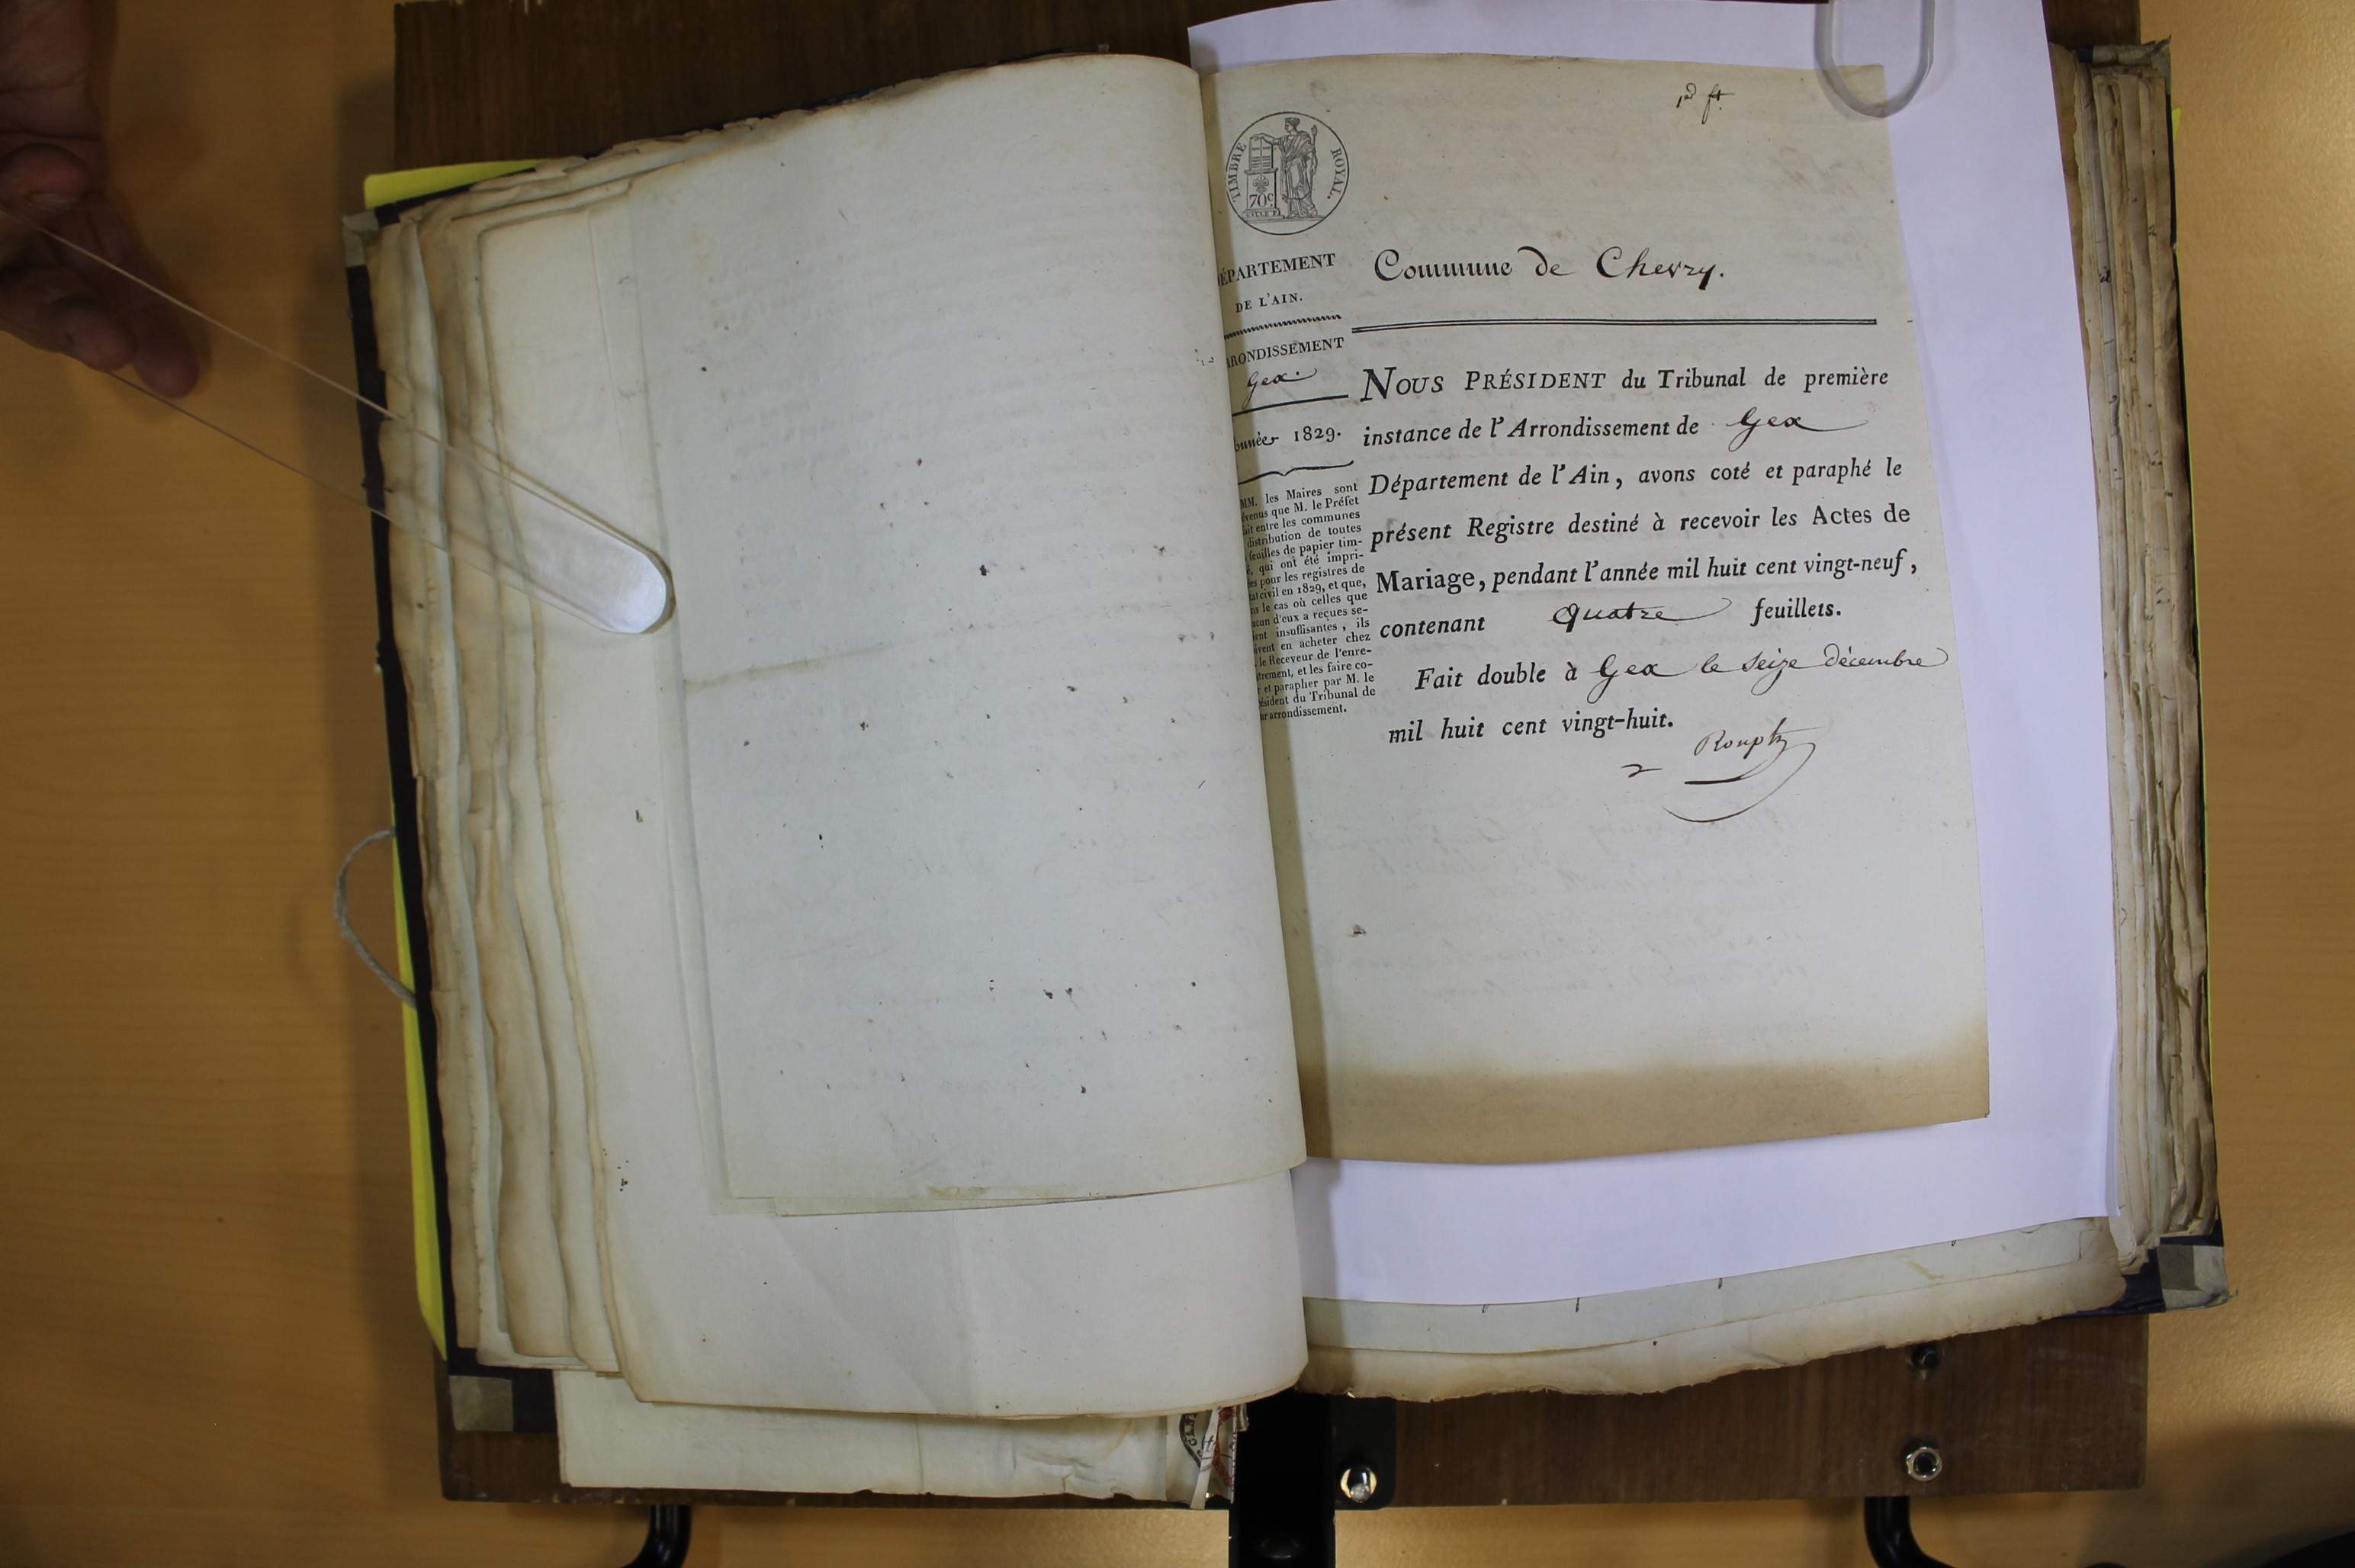 1er ft
TIMBRE ROYAL.
70c
DÉPARTEMENT
DE L'AIN.
ARRONDISSEMENT
Gex.
Année 1829.
MM. les Maires sont
prévenus que M. le Préfet
fait entre les communes
distribution de toutes
feuilles de papier tim-
bré, qui ont été impri-
mées pour les registres de
l'état civil en 1829, et que,
dans le cas où celles que
chacun d'eux a reçues se-
raient insuffisantes, ils
doivent en acheter chez
M. le Receveur de l'enre-
gistrement, et les faire co-
ter et parapher par M. le
Président du Tribunal de
leur arrondissement.
Commune de Chevry.
NOUS PRÉSIDENT du Tribunal de première
instance de l'Arrondissement de Gex
Département de l'Ain, avons coté et paraphé le
présent Registre destiné à recevoir les Actes de
Mariage, pendant l'année mil huit cent vingt-neuf,
contenant quatre feuillets.
Fait double à Gex le seize décembre
mil huit cent vingt-huit.